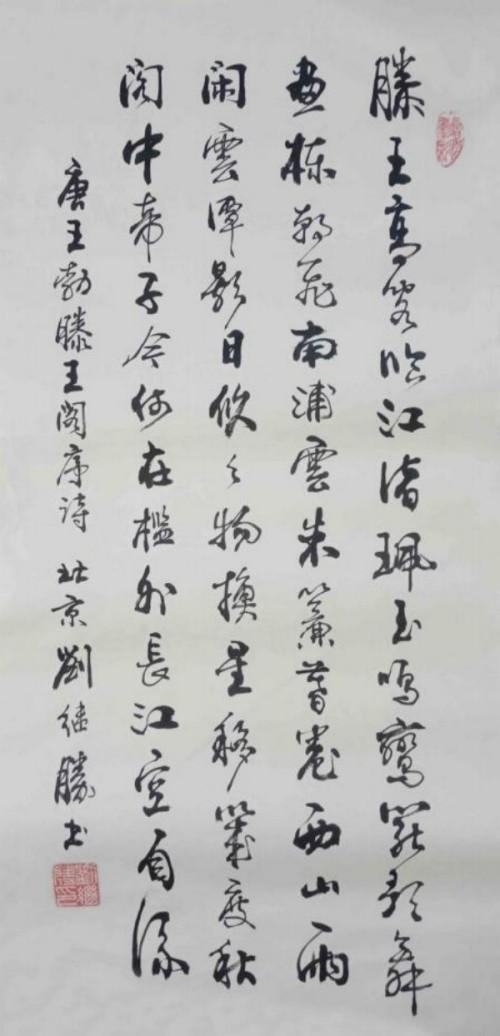 滕王高阁临江渚珮玉鳴鸞罷歌舞
画栋朝飛南浦雲朱簾暮卷西山雨
闲雲潭影日悠々物换星移幾度秋
阁中帝子今何在檻外長江空自流
唐王勃滕王阁序诗 北京劉继勝书